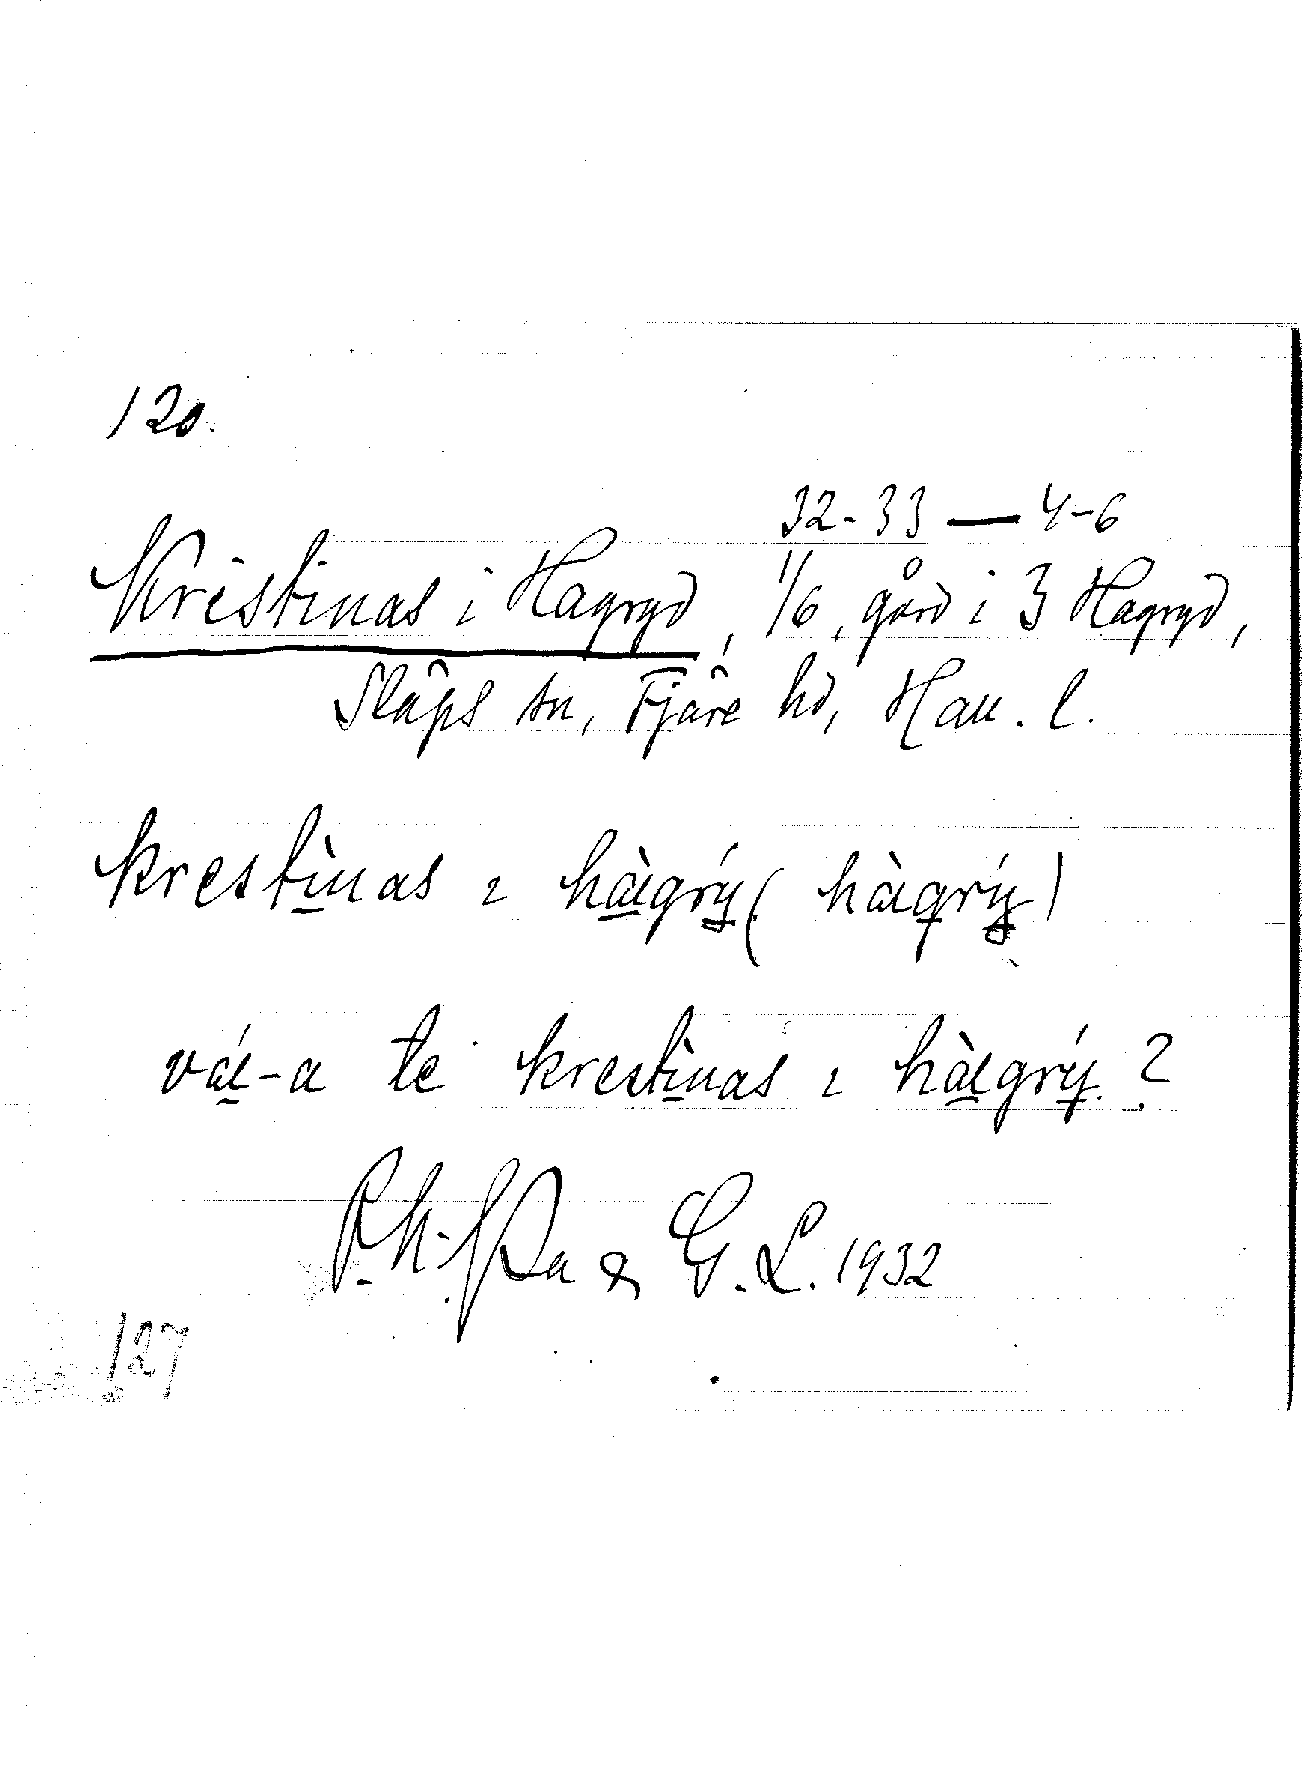 120.
32-33 — 4-6
Kristinas i Hagryd, 1/6, gård i 3 Hagryd,
Släps sn, Fjäre hd, Hall. l.
krestìnas ɩ hàgrý ( hàgrý )
vá-a te krestìnas ɩ hàgrý ?
& G. L. 1932
127